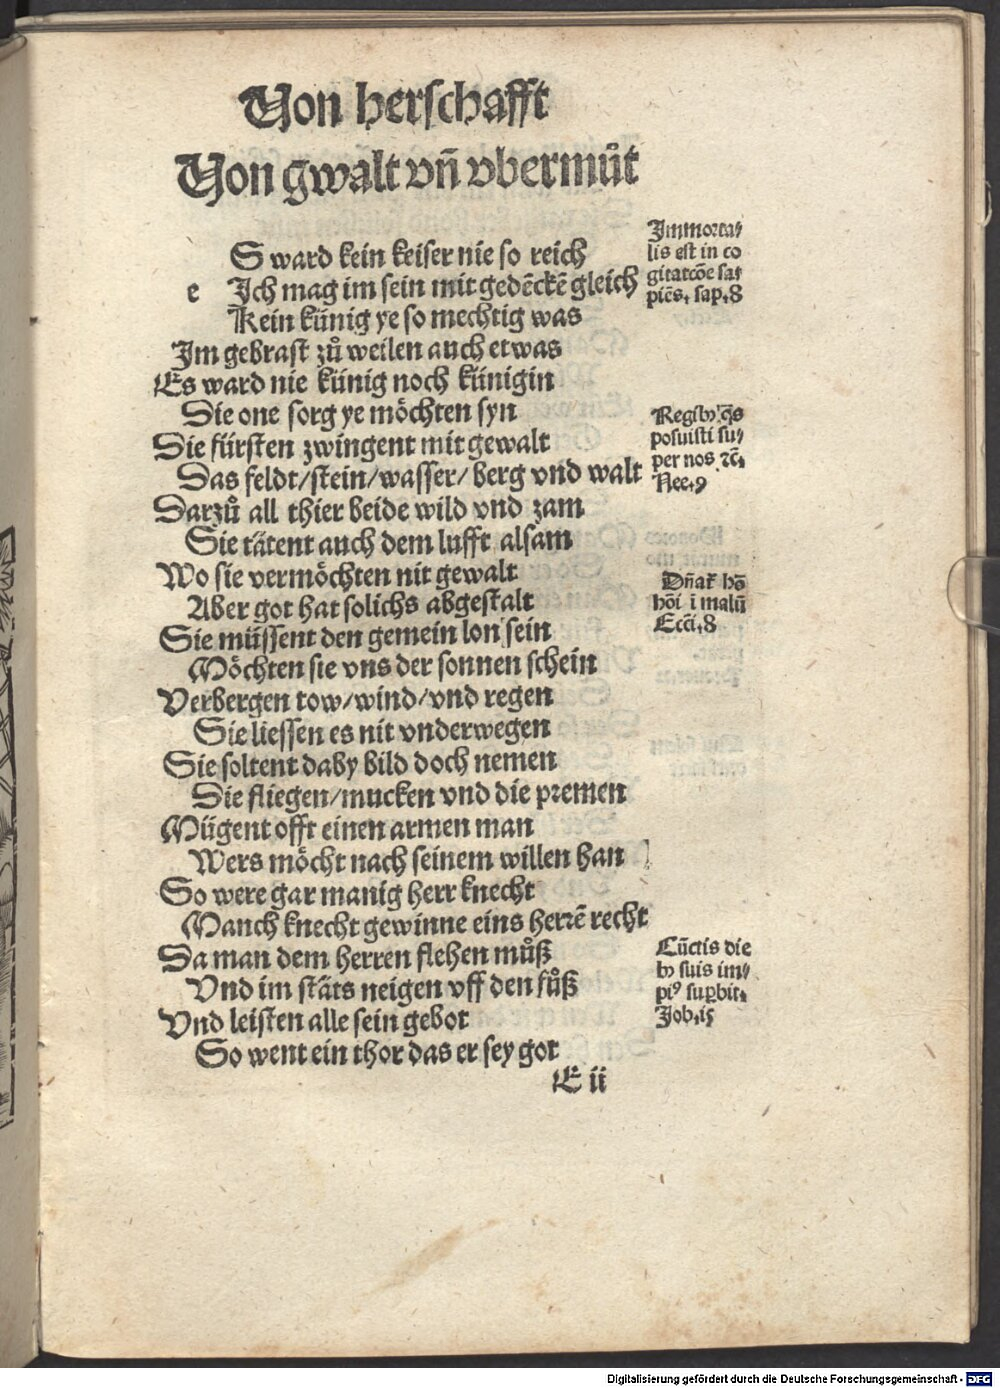 Von herschafft
Von gwalt vn̄ vbermůt
S ward kein keiser nie so reich
e Ich mag im sein mit gedēckē gleich
Kein künig ye so mechtig was
Im gebrast zů weilen auch etwas
Es ward nie künig noch künigin
Die one sorg ye möchten syn
Die fürsten zwingent mit gewalt
Das feldt/stein/wasser/ berg vnd walt
Darzů all thier beide wild vnd zam
Sie tätent auch dem lufft alsam
Wo sie vermöchten nit gewalt
Aber got hat solichs abgestalt
Sie müssent den gemein lon sein
Möchten sie vns der sonnen schein
Verbergen tow/wind/vnd regen
Sie liessen es nit vnderwegen
Sie soltent daby bild doch nemen
Die fliegen/mucken vnd die premen
Mügent offt einen armen man
Wers möcht nach seinem willen han
So were gar manig herr knecht
Manch knecht gewinne eins herrē recht
Da man dem herren flehen můß
Vnd im stäts neigen vff den fůß
Vnd leisten alle sein gebot
So went ein thor das er sey got
E ii
Immorta/
lis est in co
gitatcōe sa/
piēs. sap. 8
posuisti su/
per nos ⁊c̄.
Nee. 9
hōi ī malū
Ecci. 8
Cūctis die
suis im/
Job. 15
Digitalisierung gefördert durch die Deutsche Forschungsgemeinschaft - DFG